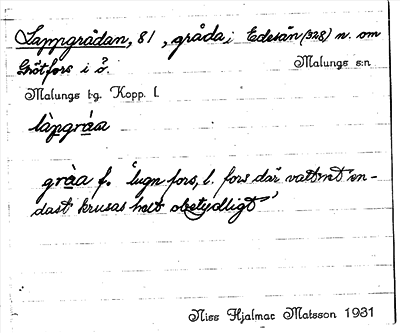 Lappgrådan, 81, gråda i Edesån (328) n. om
Grötfors i Ö. Malungs s:n
Malungs tg. Kopp. l.
làpgràa
gràa f. "lugn fors, l. fors där vattnet en-
dast krusas helt obetydligt"
Niss Hjalmar Matsson 1931